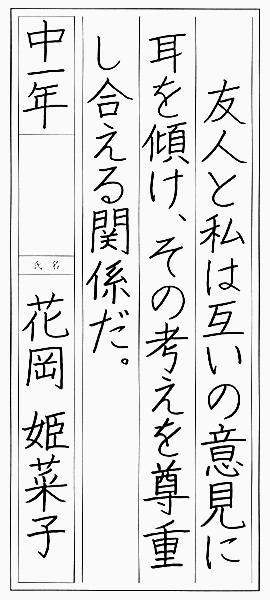 友人と私は互いの意見に
耳を傾け、その考えを尊重
し合える関係だ。
中一年
氏名
花岡 姫菜子